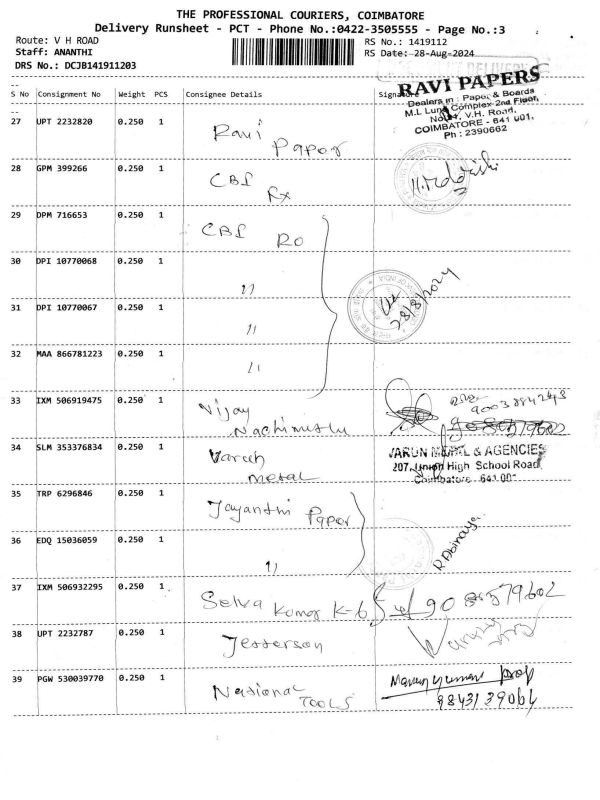 THE PROFESSIONAL COURIERS, COIMBATORE
Delivery Runsheet - PCT - Phone No.:0422-3505555 - Page No.:3
Route: V H ROAD
RS No.: 1419112
Staff: ANANTHI
RS Date: 28-Aug-2024
DRS No.: DCJB141911203
DELIVERY
S No Consignment No Weight PCS Consignee Details Signature
RAVI PAPERS
Dealers in : Paper & Boards
M.L Complex 2nd Floor,
V.H. Road,
COIMBATORE - 641 001.
Ph : 2390662
27 UPT 2232820 0.250 1 Ravi
Papor
28 GPM 399266 0.250 1 CBI
Rx
29 DPM 716653 0.250 1 CBI RO
30 DPI 10770068 0.250 1 "
28/8/2024
31 DPI 10770067 0.250 1 "
32 MAA 866781223 0.250 1 "
33 IXM 506919475 0.250 1 Vijay
Nachimuthu
34 SLM 353376834 0.250 1 Varun
metal
VARUN METAL & AGENCIES
207, Union High School Road,
Coimbatore - 641 001
35 TRP 6296846 0.250 1 Jayanthi Papor
36 EDQ 15036059 0.250 1 "
37 IXM 506932295 0.250 1 Selva Kumar K-6
38 UPT 2232787 0.250 1 Jefferson
39 PGW 530039770 0.250 1 National
TOOLS
9843139066